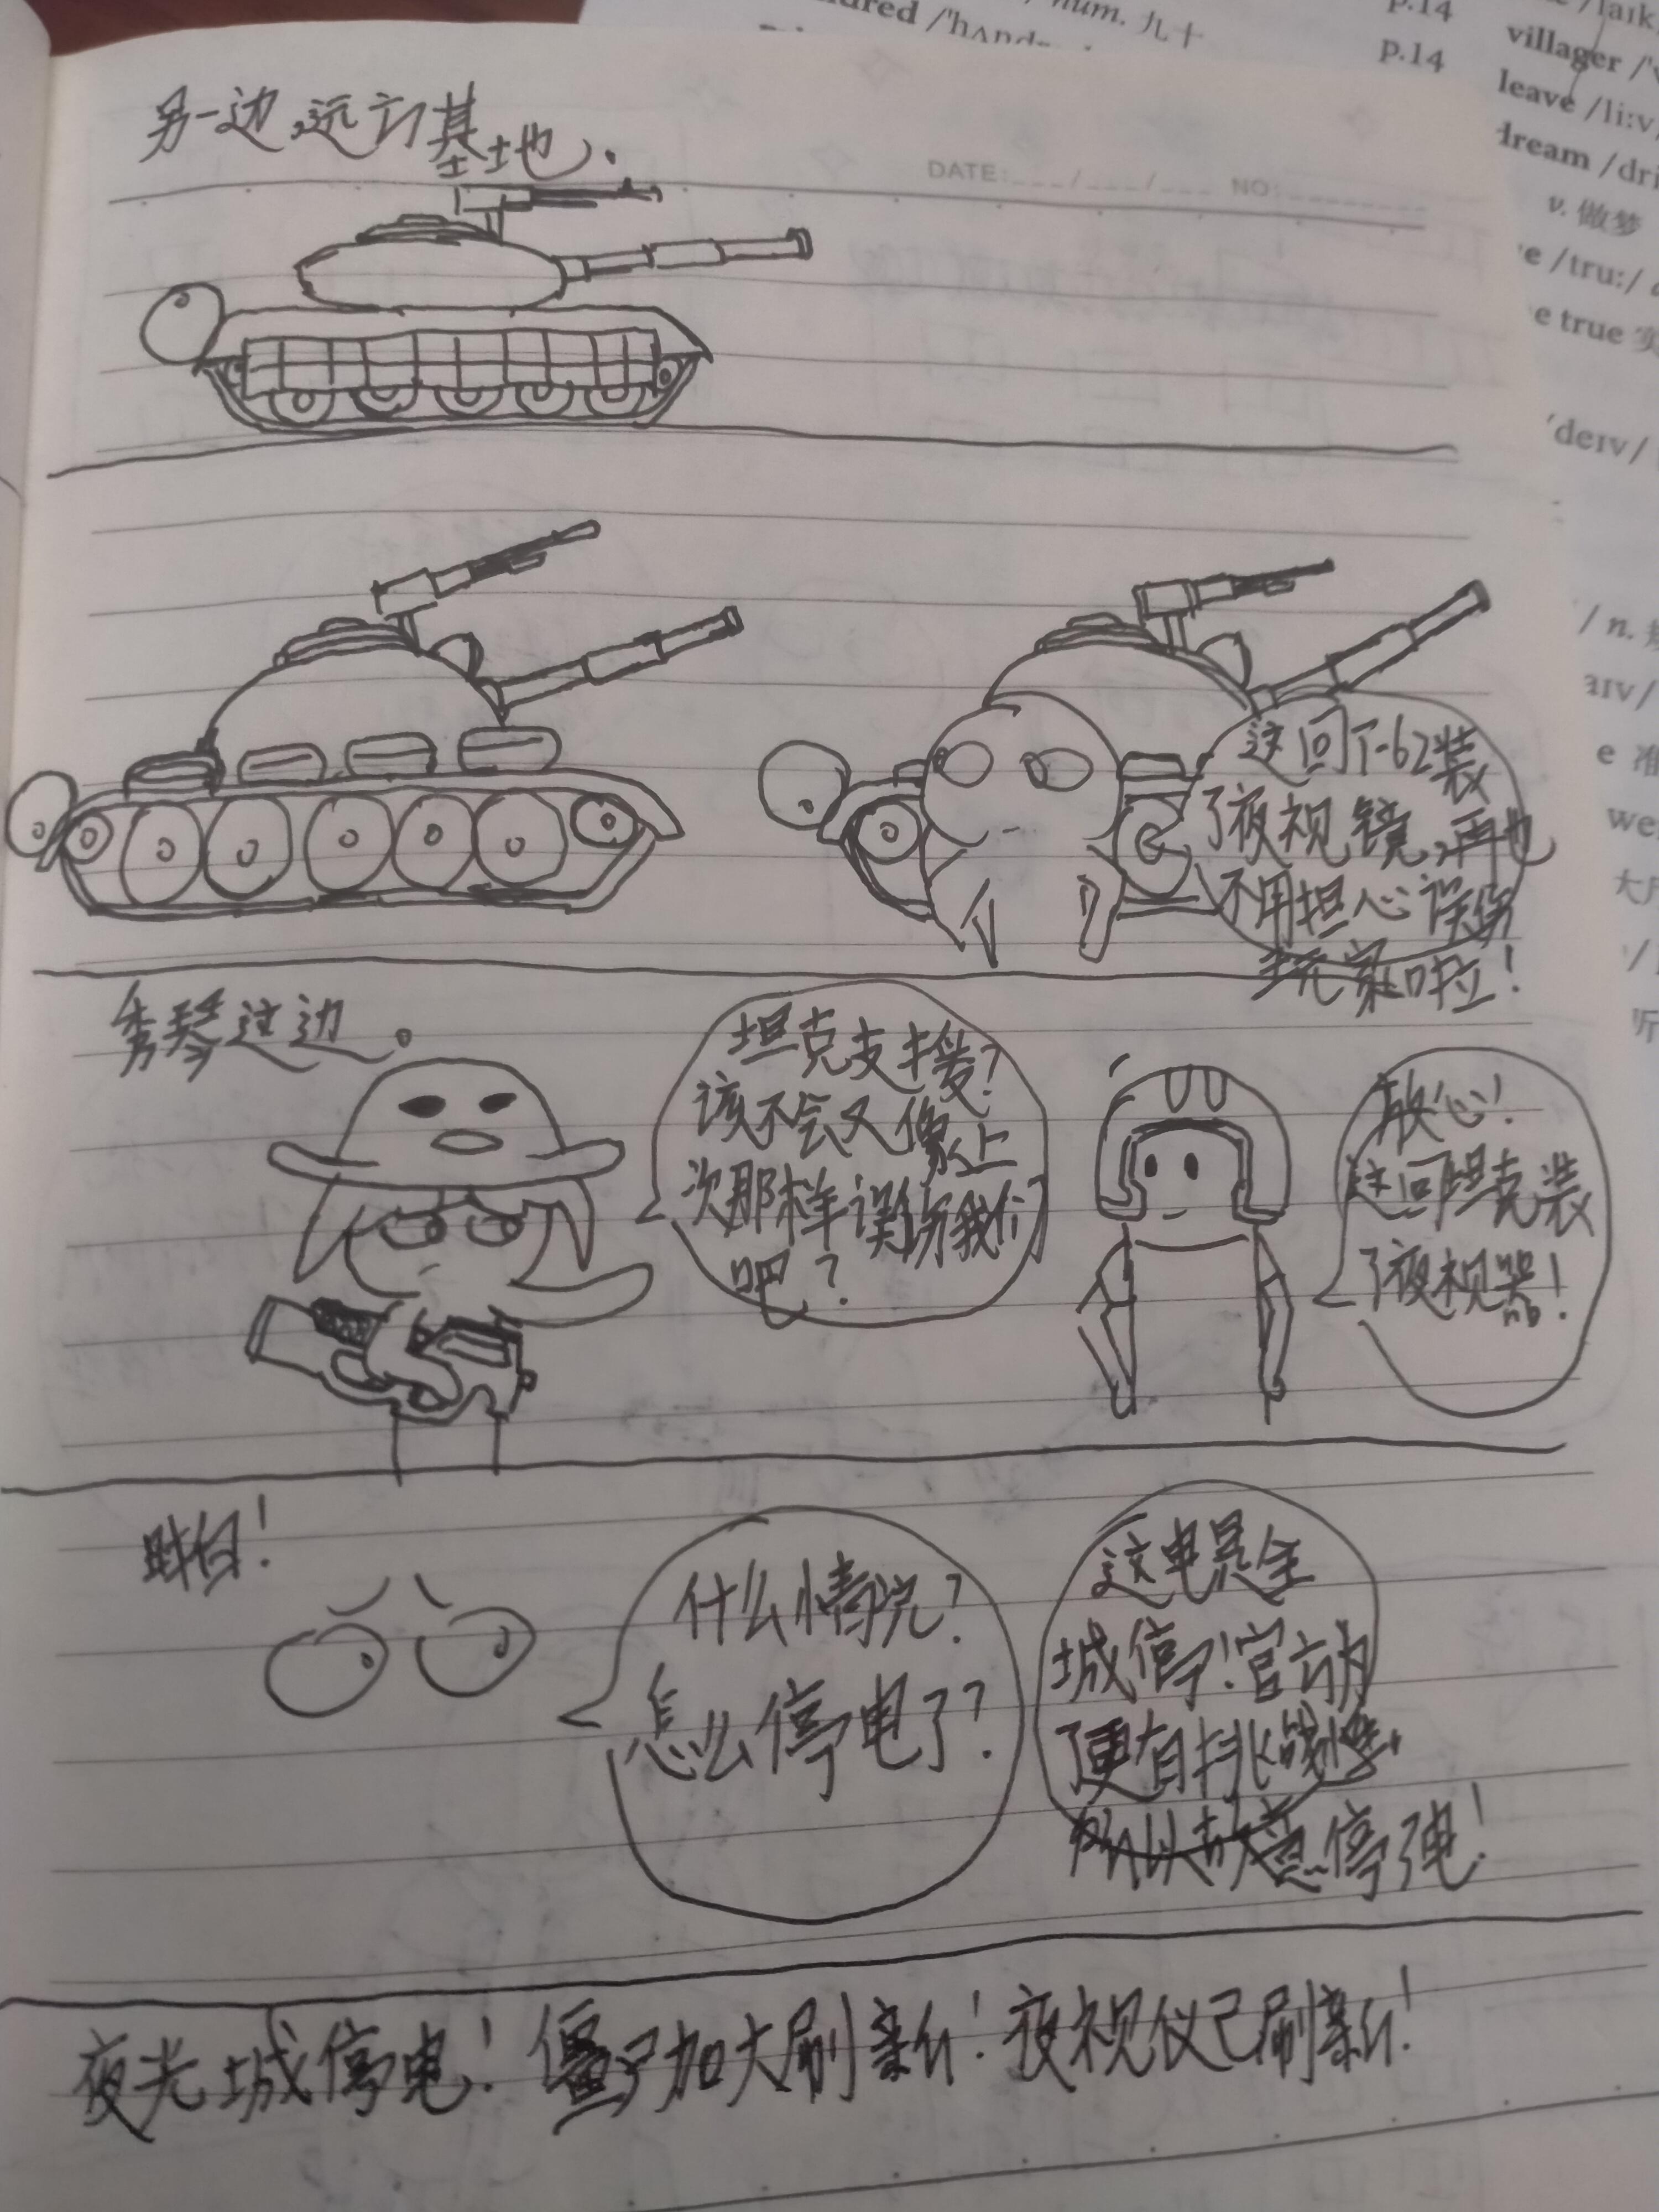 另一边,远方基地.
DATE: / / NO:
这回T-62装
了夜视镜,再也
不用担心误伤
玩家啦!
秀琴这边。
坦克支援?
该不会又像上
次那样误伤我们
吧?
放心!
这回坦克装
了夜视器!
时间!
什么情况?
怎么停电了?
这电是全
城停!官方为
了更有挑战性,
所以故意停了电!
夜光城停电!僵尸加大刷新!夜视仪已刷新!
num. 九十
p.14
p.14
villager
leave /li:v
dream /dri
v. 做梦
/tru:/
e true